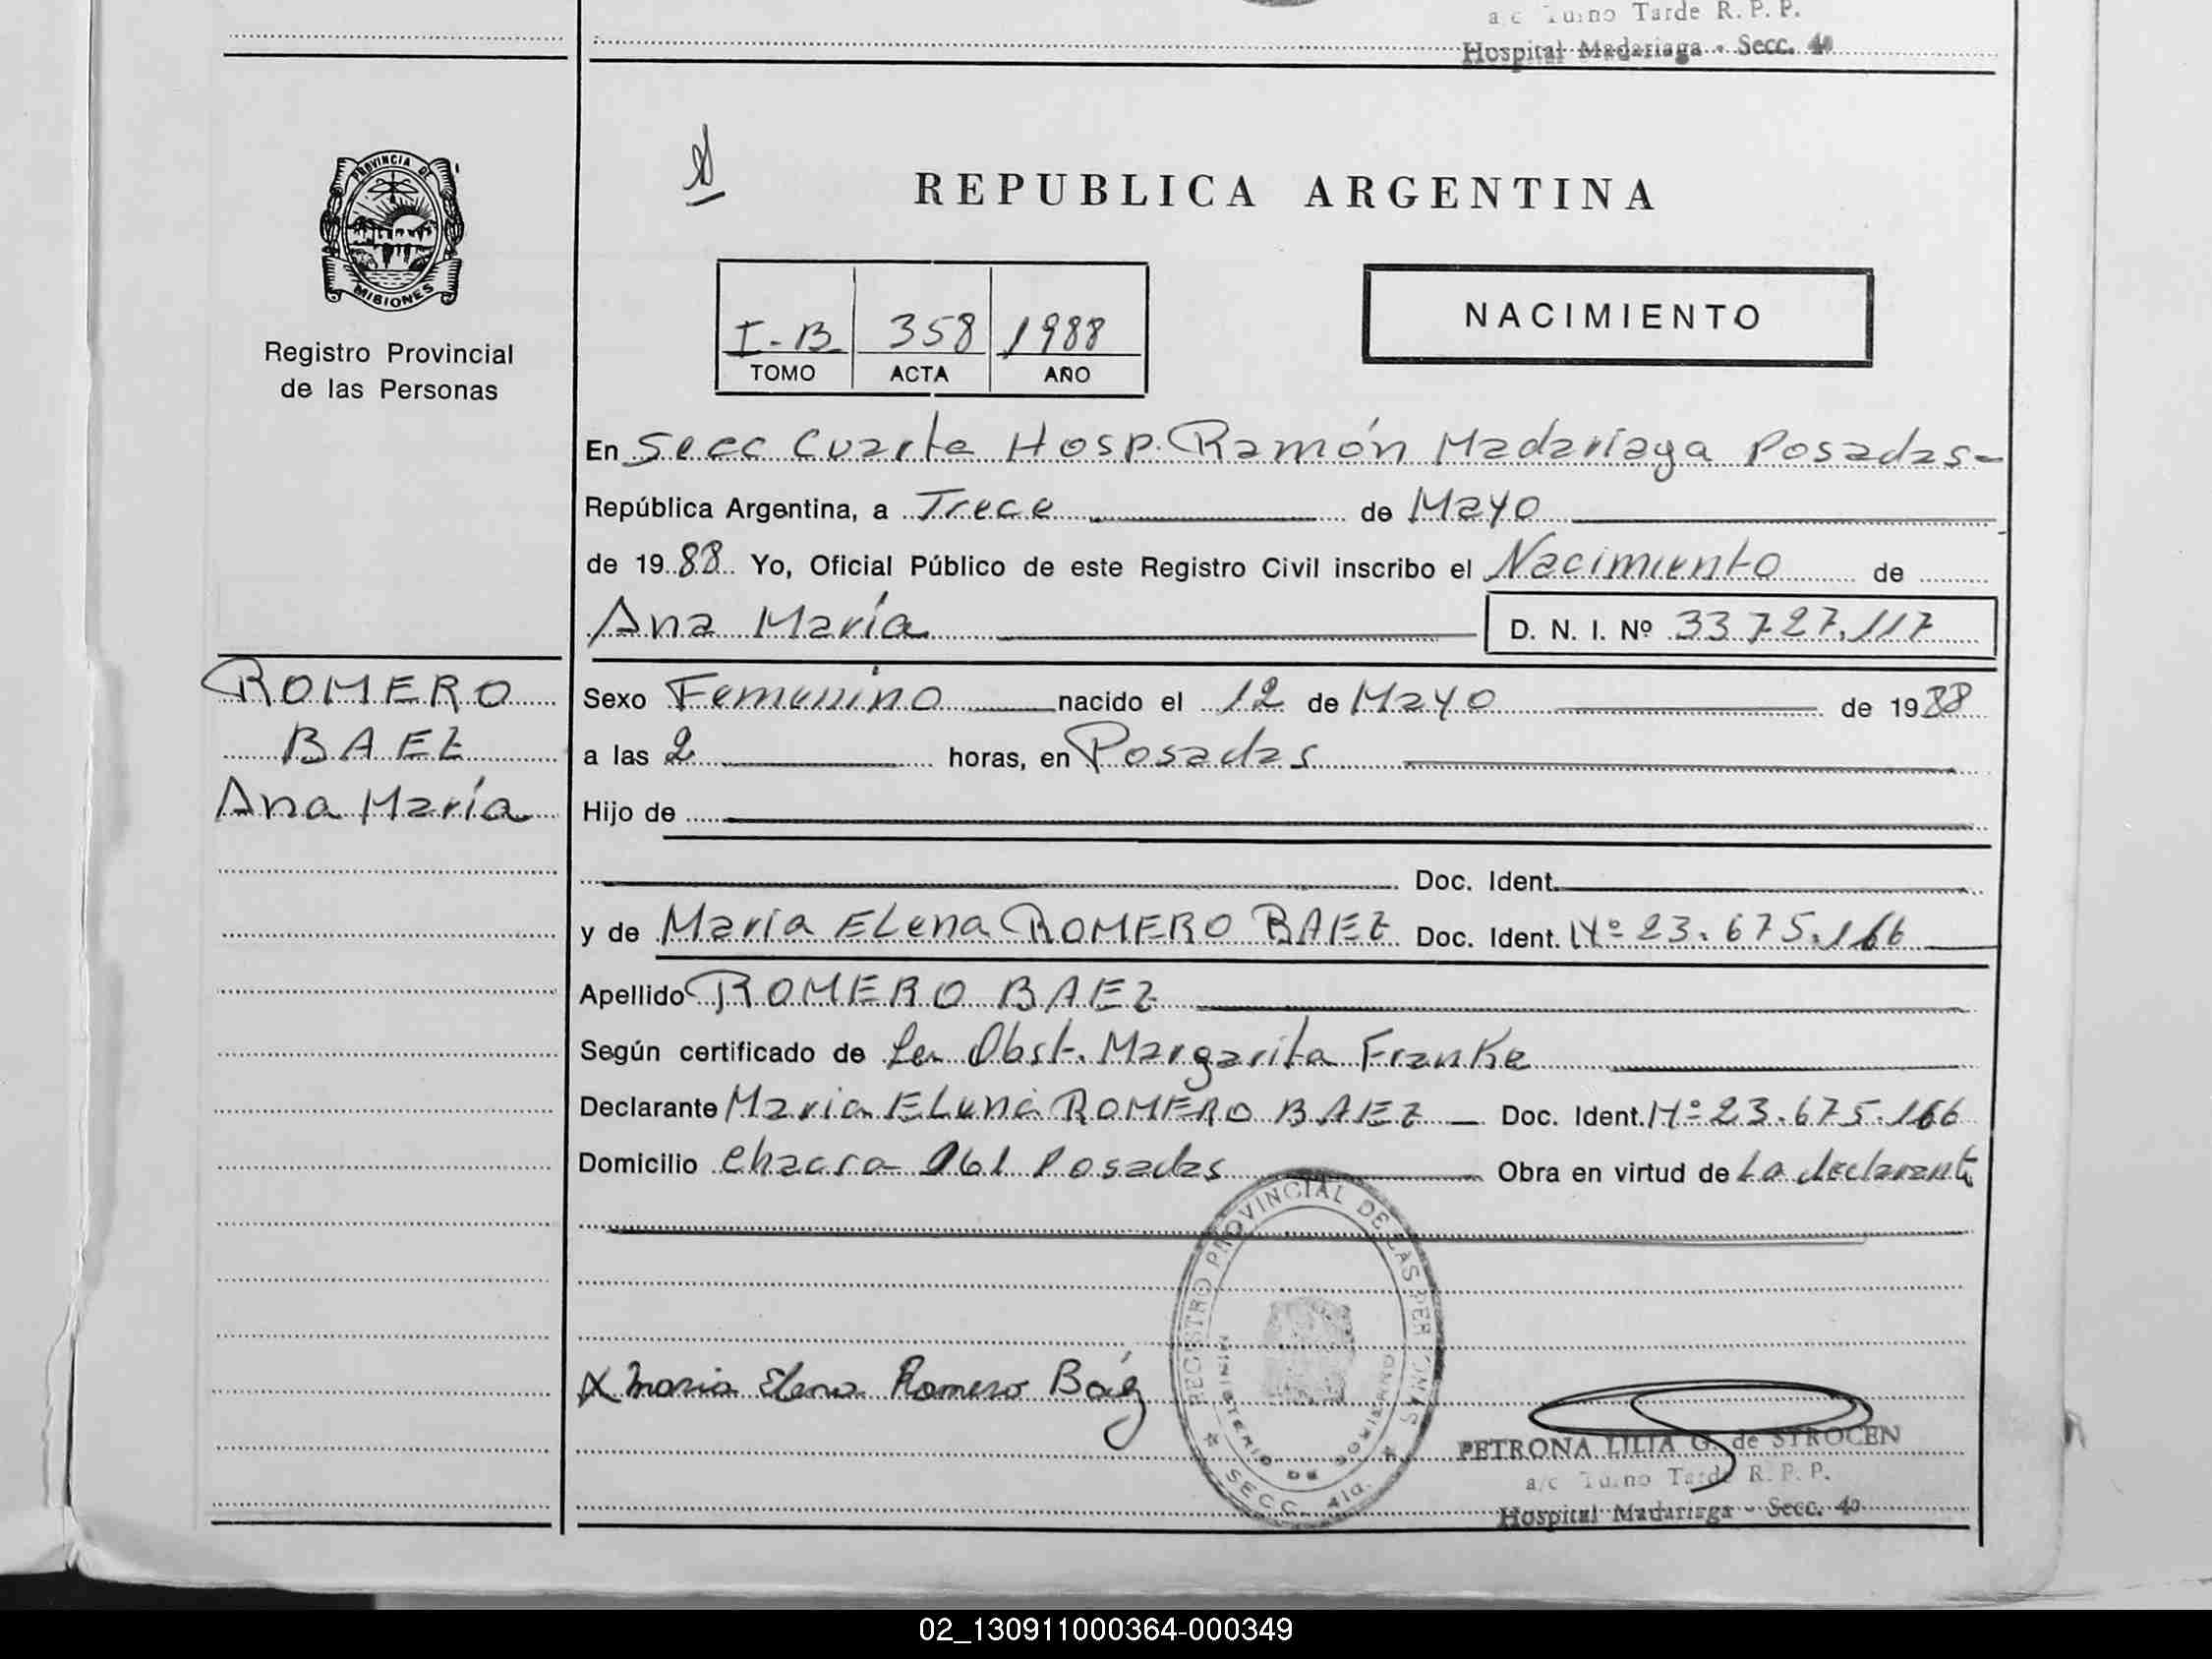 a/c Turno Tarde R. P. P.
Hospital Madariaga - Secc. 4a
PROVINCIA DE
MISIONES
Registro Provincial
de las Personas
REPUBLICA ARGENTINA
I-B 358 1988
TOMO ACTA AÑO
NACIMIENTO
En Secc Cuarta Hosp. Ramón Madariaga Posadas-
República Argentina, a Trece de Mayo
de 1988 Yo, Oficial Público de este Registro Civil inscribo el Nacimiento de
Ana María D. N. I. Nº 33.727.117
ROMERO
BAEZ
Ana María
Sexo Femenino nacido el 12 de Mayo de 1988
a las 2 horas, en Posadas
Hijo de
Doc. Ident.
y de María ELena ROMERO BAEZ Doc. Ident. Nº 23.675.166
Apellido ROMERO BAEZ
Según certificado de Obst. Margarita Franke
Declarante María ELena ROMERO BAEZ Doc. Ident. Nº 23.675.166
Domicilio Chacra 161 Posadas Obra en virtud de La declarante
REGISTRO PROVINCIAL DE LAS PERSONAS
MINISTERIO DE GOBIERNO
SECC. 4ta.
x Maria Elena Romero Báez
PETRONA LILIA G. de STROCEN
a/c Turno Tarde R. P. P.
Hospital Madariaga - Secc. 4a
02_130911000364-000349